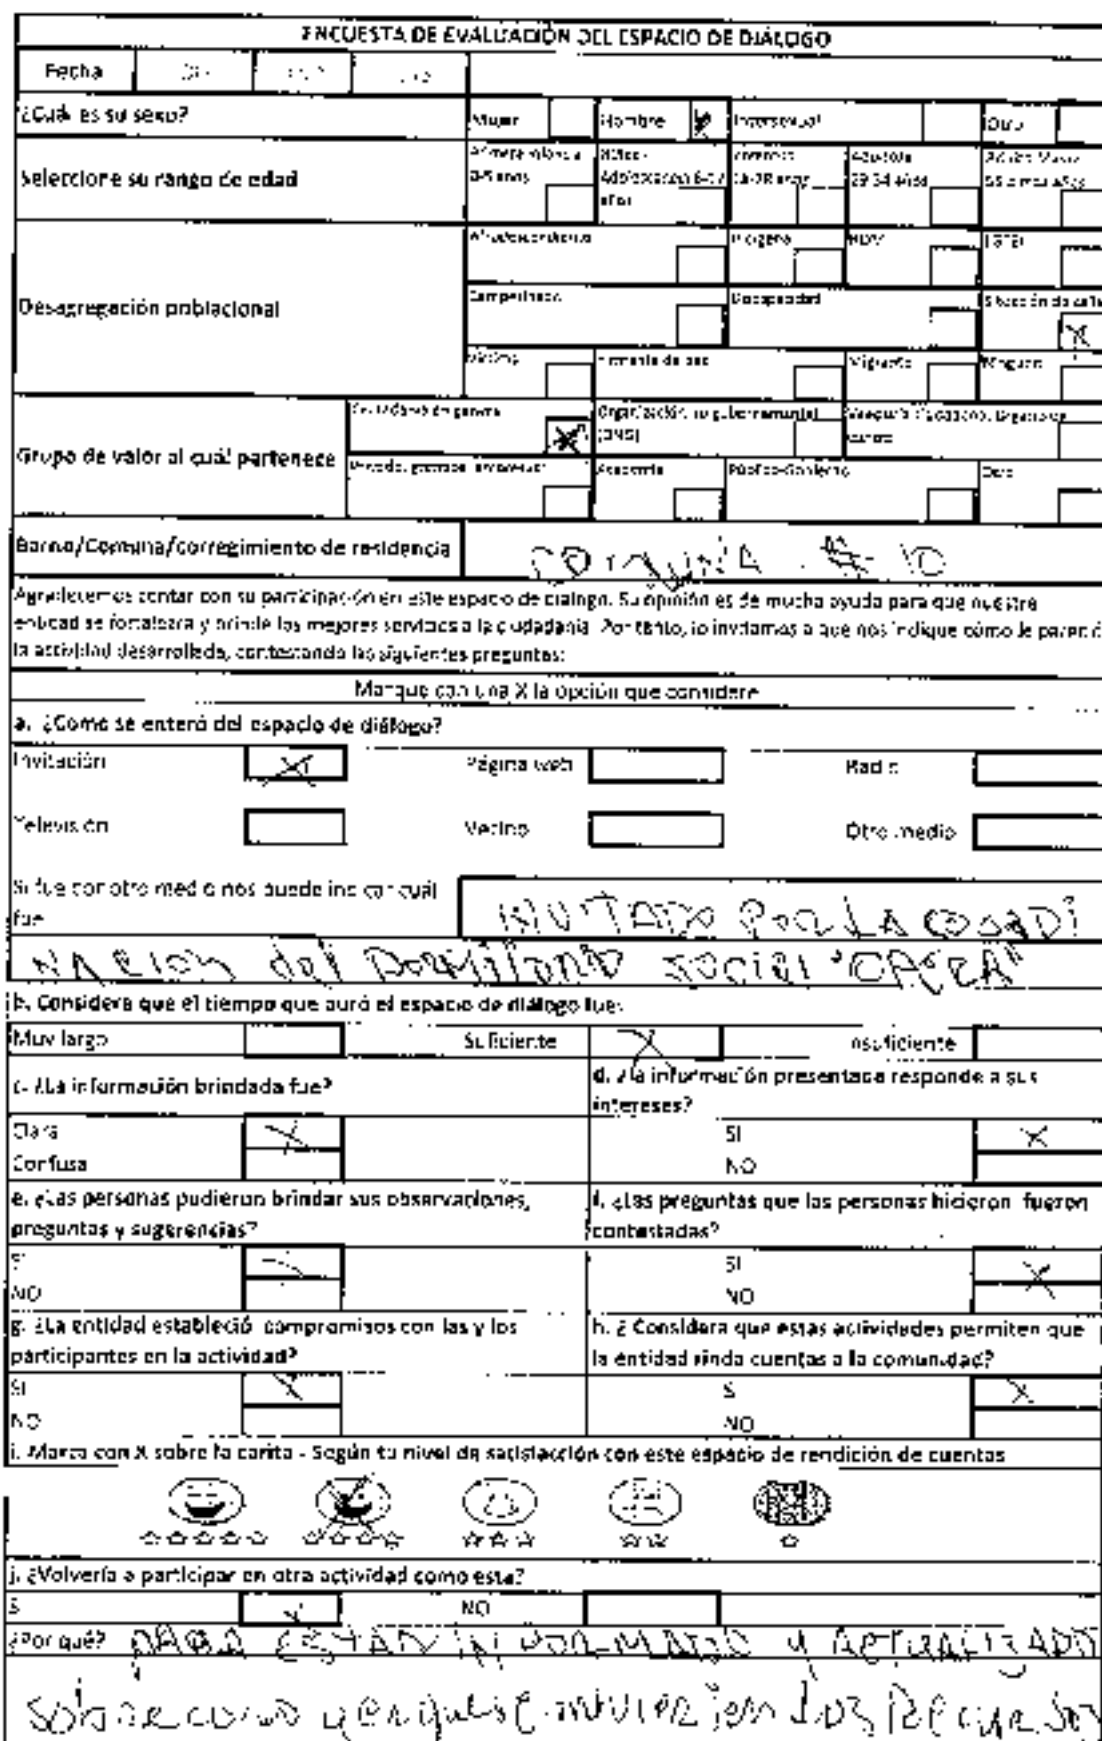 ENCUESTA DE EVALUACIÓN DEL ESPACIO DE DIÁLOGO
Fecha
¿Cuál es su sexo? Mujer Hombre Intersexual Otro
Seleccione su rango de edad
0-5 años Adolescencia 6-17 años 18-28 años 29-54 años
Desagregación poblacional
Afrodescendiente Indígena
Campesinado Discapacidad Situación de calle
Víctima Migrante Ninguno
Grupo de valor al cuál pertenece
Organización no gubernamental (ONG)
Academia Público-Gobierno Otro
Barrio/Comuna/corregimiento de residencia # 10
Agradecemos contar con su participación en este espacio de dialogo. Su opinión es de mucha ayuda para que nuestra
entidad se fortalezca y brinde los mejores servicios a la ciudadanía. Por tanto, lo invitamos a que nos indique cómo le pareció
la actividad desarrollada, contestando las siguientes preguntas:
Marque con una X la opción que considere
a. ¿Como se enteró del espacio de diálogo?
Invitación X Página web Radio
Televisión Vecino Otro medio
Si fue por otro medio nos puede indicar cuál
fue INVITADO POR LA COORDI
NACION del social
b. Considera que el tiempo que duró el espacio de diálogo fue:
Muy largo Suficiente X Insuficiente
c. ¿La información brindada fue? d. ¿la información presentada responde a sus
intereses?
Clara X SI X
Confusa NO
e. ¿Las personas pudieron brindar sus observaciones, f. ¿Las preguntas que las personas hicieron fueron
preguntas y sugerencias? contestadas?
SI SI X
NO NO
g. ¿La entidad estableció compromisos con las y los h. ¿ Considera que estas actividades permiten que
participantes en la actividad? la entidad rinda cuentas a la comunidad?
SI X SI X
NO NO
i. Marca con X sobre la carita - Según tu nivel de satisfacción con este espacio de rendición de cuentas
j. ¿Volvería a participar en otra actividad como esta?
SI NO
¿Por qué? PARA ESTAR INFORMADO y ACTUALIZADO
sobre como y en que se invierten Los Recursos